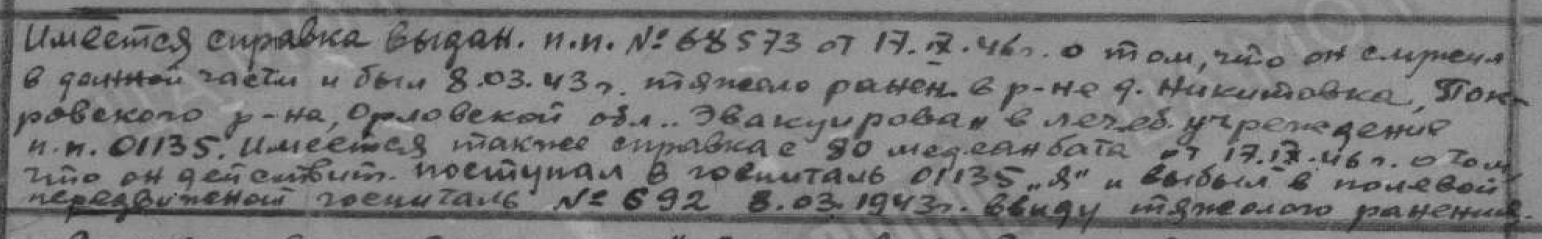 Имеется справка выдан. п.п. № 68573 от 17.IX.46г. о том, что он служил
в данной части и был 8.03.43г. тяжело ранен в р-не д. Никитовка, Пок-
ровского р-на, Орловской обл.. Эвакуирован в лечеб. учреждение
п.п. 01135. Имеется также справка с 80 медсанбата от 17.IX.46г. о том,
что он действит. поступал в госпиталь 01135 „Я" и выбыл в полевой
передвижной госпиталь № 692 8.03.1943г. ввиду тяжелого ранения.